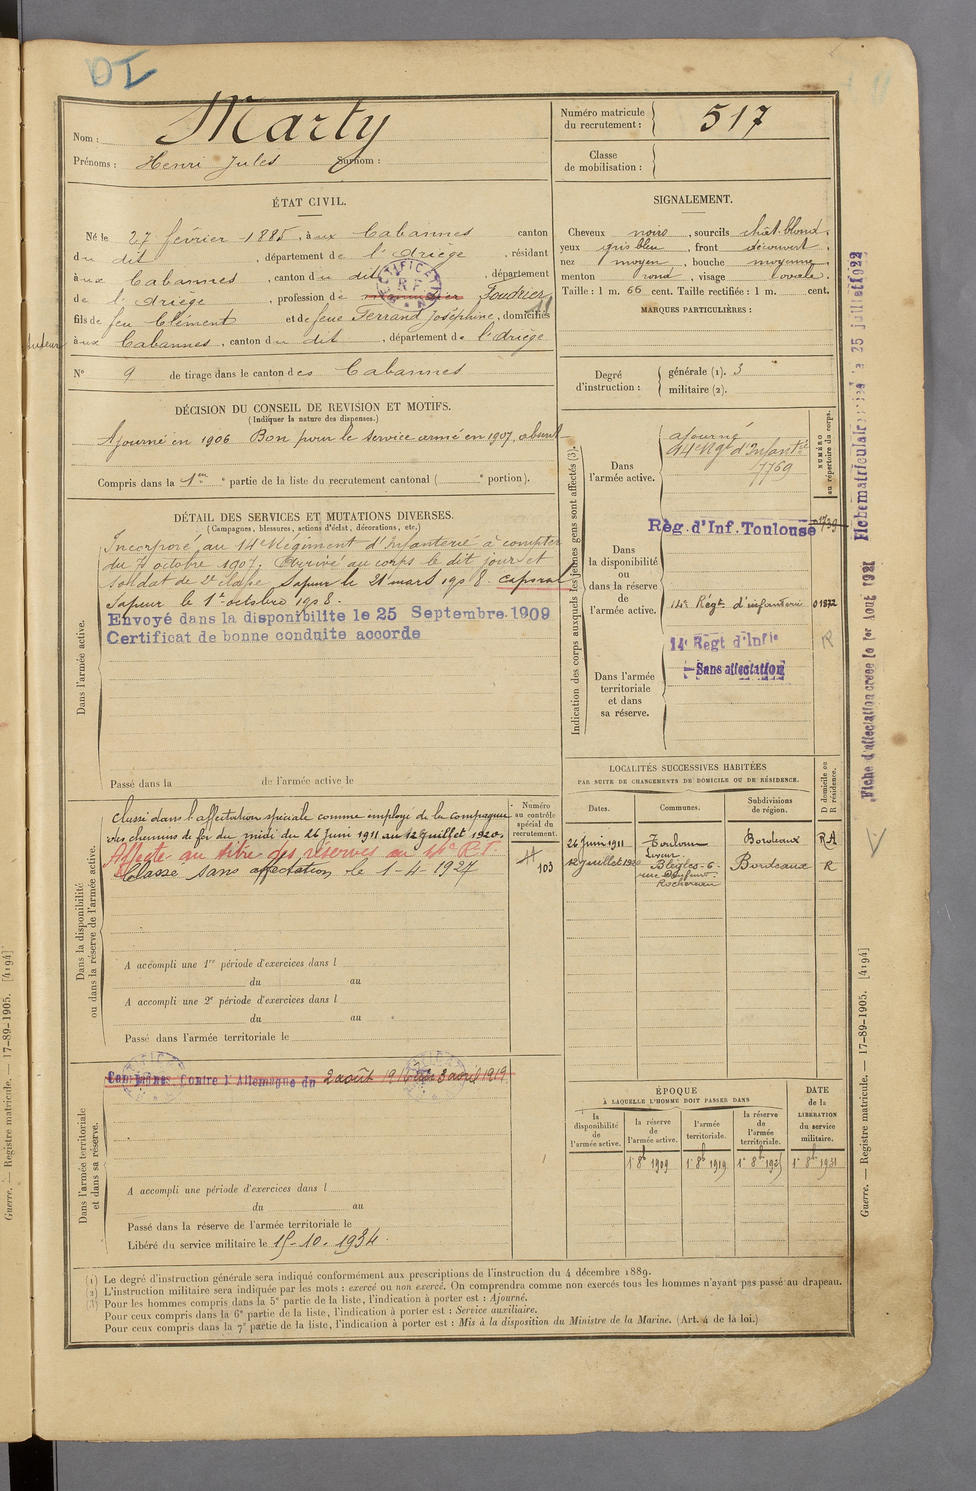 DI
Nom : Marty
Prénoms : Henri Jules Surnom :
Numéro matricule du recrutement : 517
Classe de mobilisation :
ÉTAT CIVIL.
Né le 27 février 1885, à aux Cabannes canton
du dit, département de l'Ariège, résidant
à aux Cabannes, canton du dit, département
de l'Ariège, profession de Foudrier
fils de feu Clément et de feue Ferrant Joséphine, domiciliés
à aux Cabannes, canton du dit, département de l'Ariège
N° 9 de tirage dans le canton des Cabannes
SIGNALEMENT.
Cheveux noirs, sourcils chât. blond,
yeux gris bleu, front découvert,
nez moyen, bouche moyenne,
menton rond, visage ovale.
Taille : 1 m. 66 cent. Taille rectifiée : 1 m. cent.
MARQUES PARTICULIÈRES :
Degré d'instruction : générale (1). 3
militaire (2).
DÉCISION DU CONSEIL DE REVISION ET MOTIFS.
(Indiquer la nature des dispenses.)
Ajourné en 1906 Bon pour le service armé en 1907, absent
Compris dans la 1re partie de la liste du recrutement cantonal ( e portion).
DÉTAIL DES SERVICES ET MUTATIONS DIVERSES.
(Campagnes, blessures, actions d'éclat, décorations, etc.)
Dans l'armée active.
Incorporé au 14e Régiment d'Infanterie à compter
du 7 octobre 1907. Arrivé au corps le dit jour et
soldat de 2e classe. Sapeur le 21 mars 1908. caporal
Sapeur le 1er octobre 1908.
Envoyé dans la disponibilite le 25 Septembre 1909
Certificat de bonne conduite accorde
Passé dans la de l'armée active le
Indication des corps auxquels les jeunes gens sont affectés (3).
NUMÉRO au répertoire du corps.
Dans l'armée active.
ajourné
14e Rgt d'Infantie
7769
Dans la disponibilité ou dans la réserve de l'armée active.
Règ. d'Inf. Toulouse
14e Régt. d'infanterie 01872
14e Régt d'Infie
R
Sans affectation
Dans l'armée territoriale et dans sa réserve.
Fiche matriculaire créée le 25 juillet 1922
Fiche d'affectation créée le 1er Aout 1921
Dans la disponibilité ou dans la réserve de l'armée active.
Numéro au contrôle spécial du recrutement.
103
Classé dans l'affectation spéciale comme employé de la compagnie
des chemins de fer du midi du 26 Juin 1911 au 12 Juillet 1920.
Affecté au titre des réserves au 14e R.I.
Classe sans affectation le 1-4-1927
A accompli une 1re période d'exercices dans l
du au
A accompli une 2e période d'exercices dans l
du au
Passé dans l'armée territoriale le
LOCALITÉS SUCCESSIVES HABITÉES
PAR SUITE DE CHANGEMENTS DE DOMICILE OU DE RÉSIDENCE.
Dates. Communes. Subdivisions de région. D domicile ou R résidence.
26 Juin 1911 Toulouse Bordeaux RA
12 Juillet 1920 Bègles - 6 Bordeaux R
Dans l'armée territoriale et dans sa réserve.
Campagnes Contre l'Allemagne du 2 août 1914 au 3 avril 1919
A accompli une période d'exercices dans l
du au
Passé dans la réserve de l'armée territoriale le
Libéré du service militaire le 15-10-1934.
ÉPOQUE
À LAQUELLE L'HOMME DOIT PASSER DANS
la disponibilité de l'armée active. la réserve de l'armée active. l'armée territoriale. la réserve de l'armée territoriale. DATE de la LIBÉRATION du service militaire.
1er 8bre 1909 1er 8bre 1919 1er 8bre 1925 1er 8bre 1931
(1) Le degré d'instruction générale sera indiqué conformément aux prescriptions de l'instruction du 4 décembre 1889.
(2) L'instruction militaire sera indiquée par les mots : exercé ou non exercé. On comprendra comme non exercés tous les hommes n'ayant pas passé au drapeau.
(3) Pour les hommes compris dans la 5e partie de la liste, l'indication à porter est : Ajourné.
Pour ceux compris dans la 6e partie de la liste, l'indication à porter est : Service auxiliaire.
Pour ceux compris dans la 7e partie de la liste, l'indication à porter est : Mis à la disposition du Ministre de la Marine. (Art. 4 de la loi.)
Guerre. — Registre matricule. — 17-89-1905. [4194]
Guerre. — Registre matricule. — 17-89-1905. [4194]